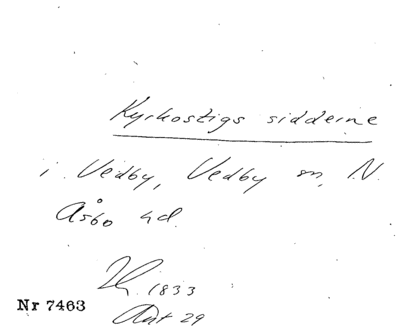 Kyrkostigs sidderne
i Vedby, Vedby sn, N.
Åsbo hd.
1833
Ant 29
Nr 7463